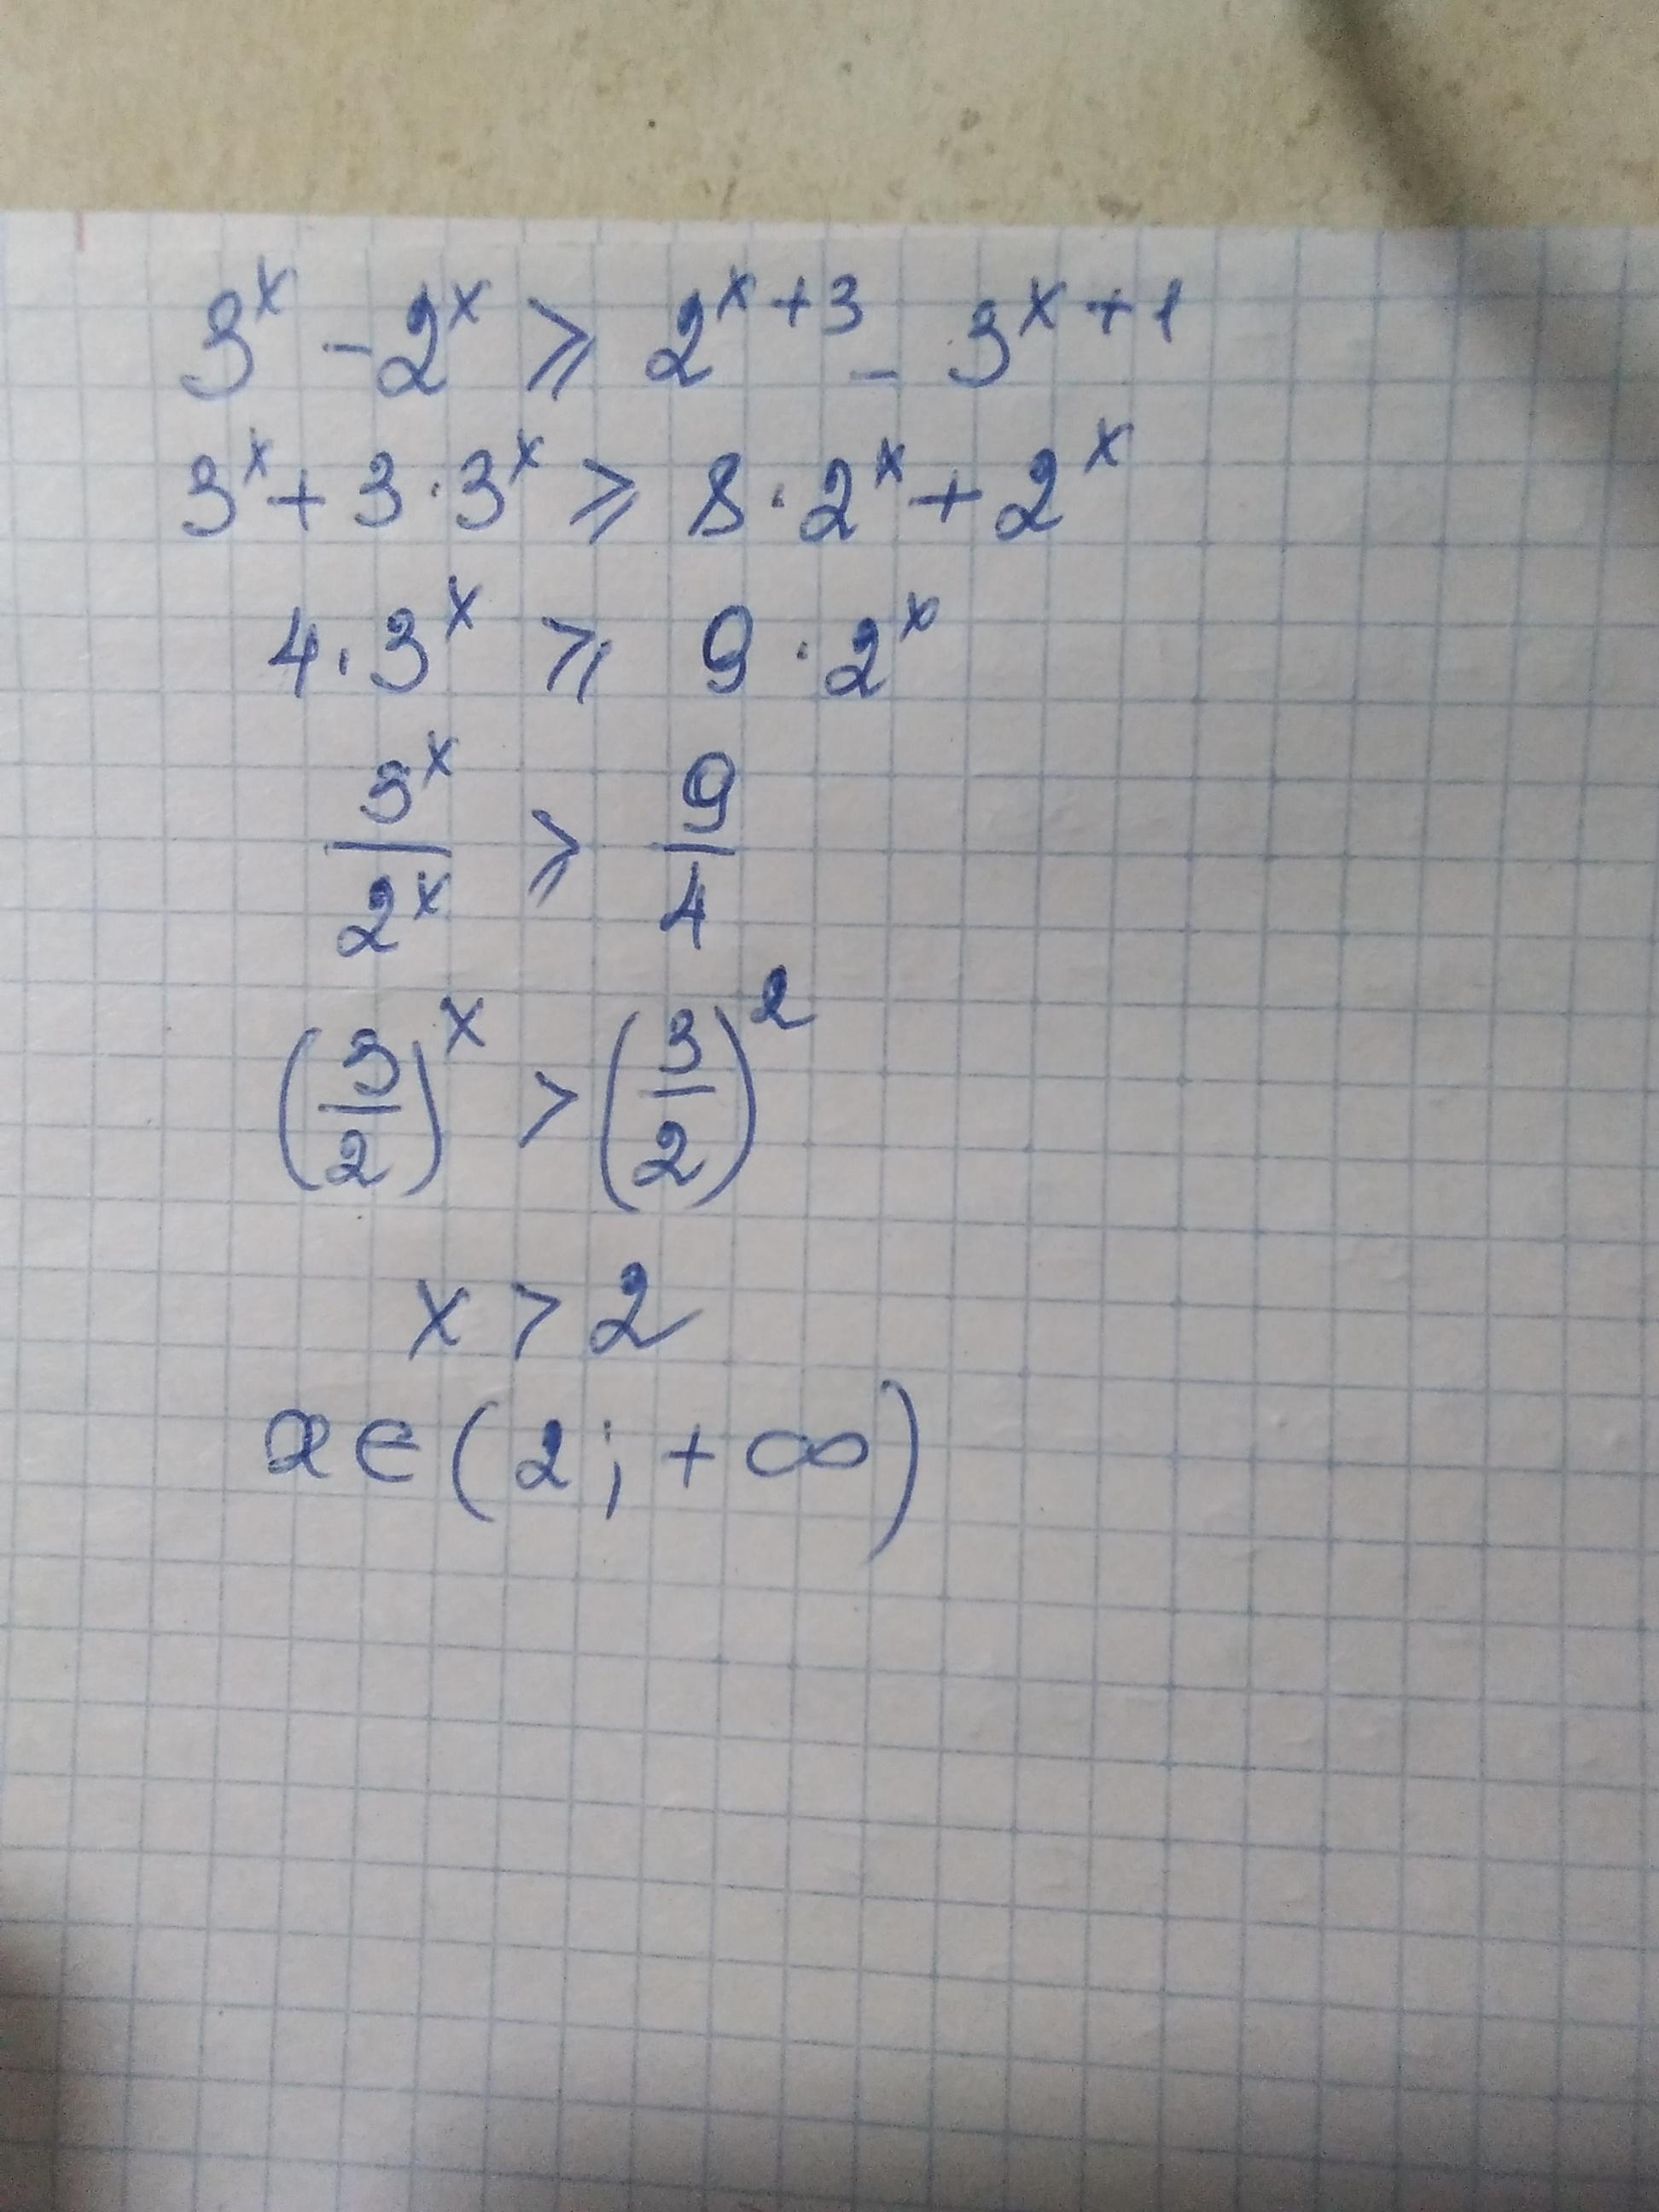 3^x - 2^x ⩾ 2^{x+3} - 3^{x+1}
3^x + 3 · 3^x ⩾ 8 · 2^x + 2^x
4 · 3^x ⩾ 9 · 2^x
3^x / 2^x ⩾ 9 / 4
(3/2)^x > (3/2)^2
x > 2
x ∈ (2; +∞)